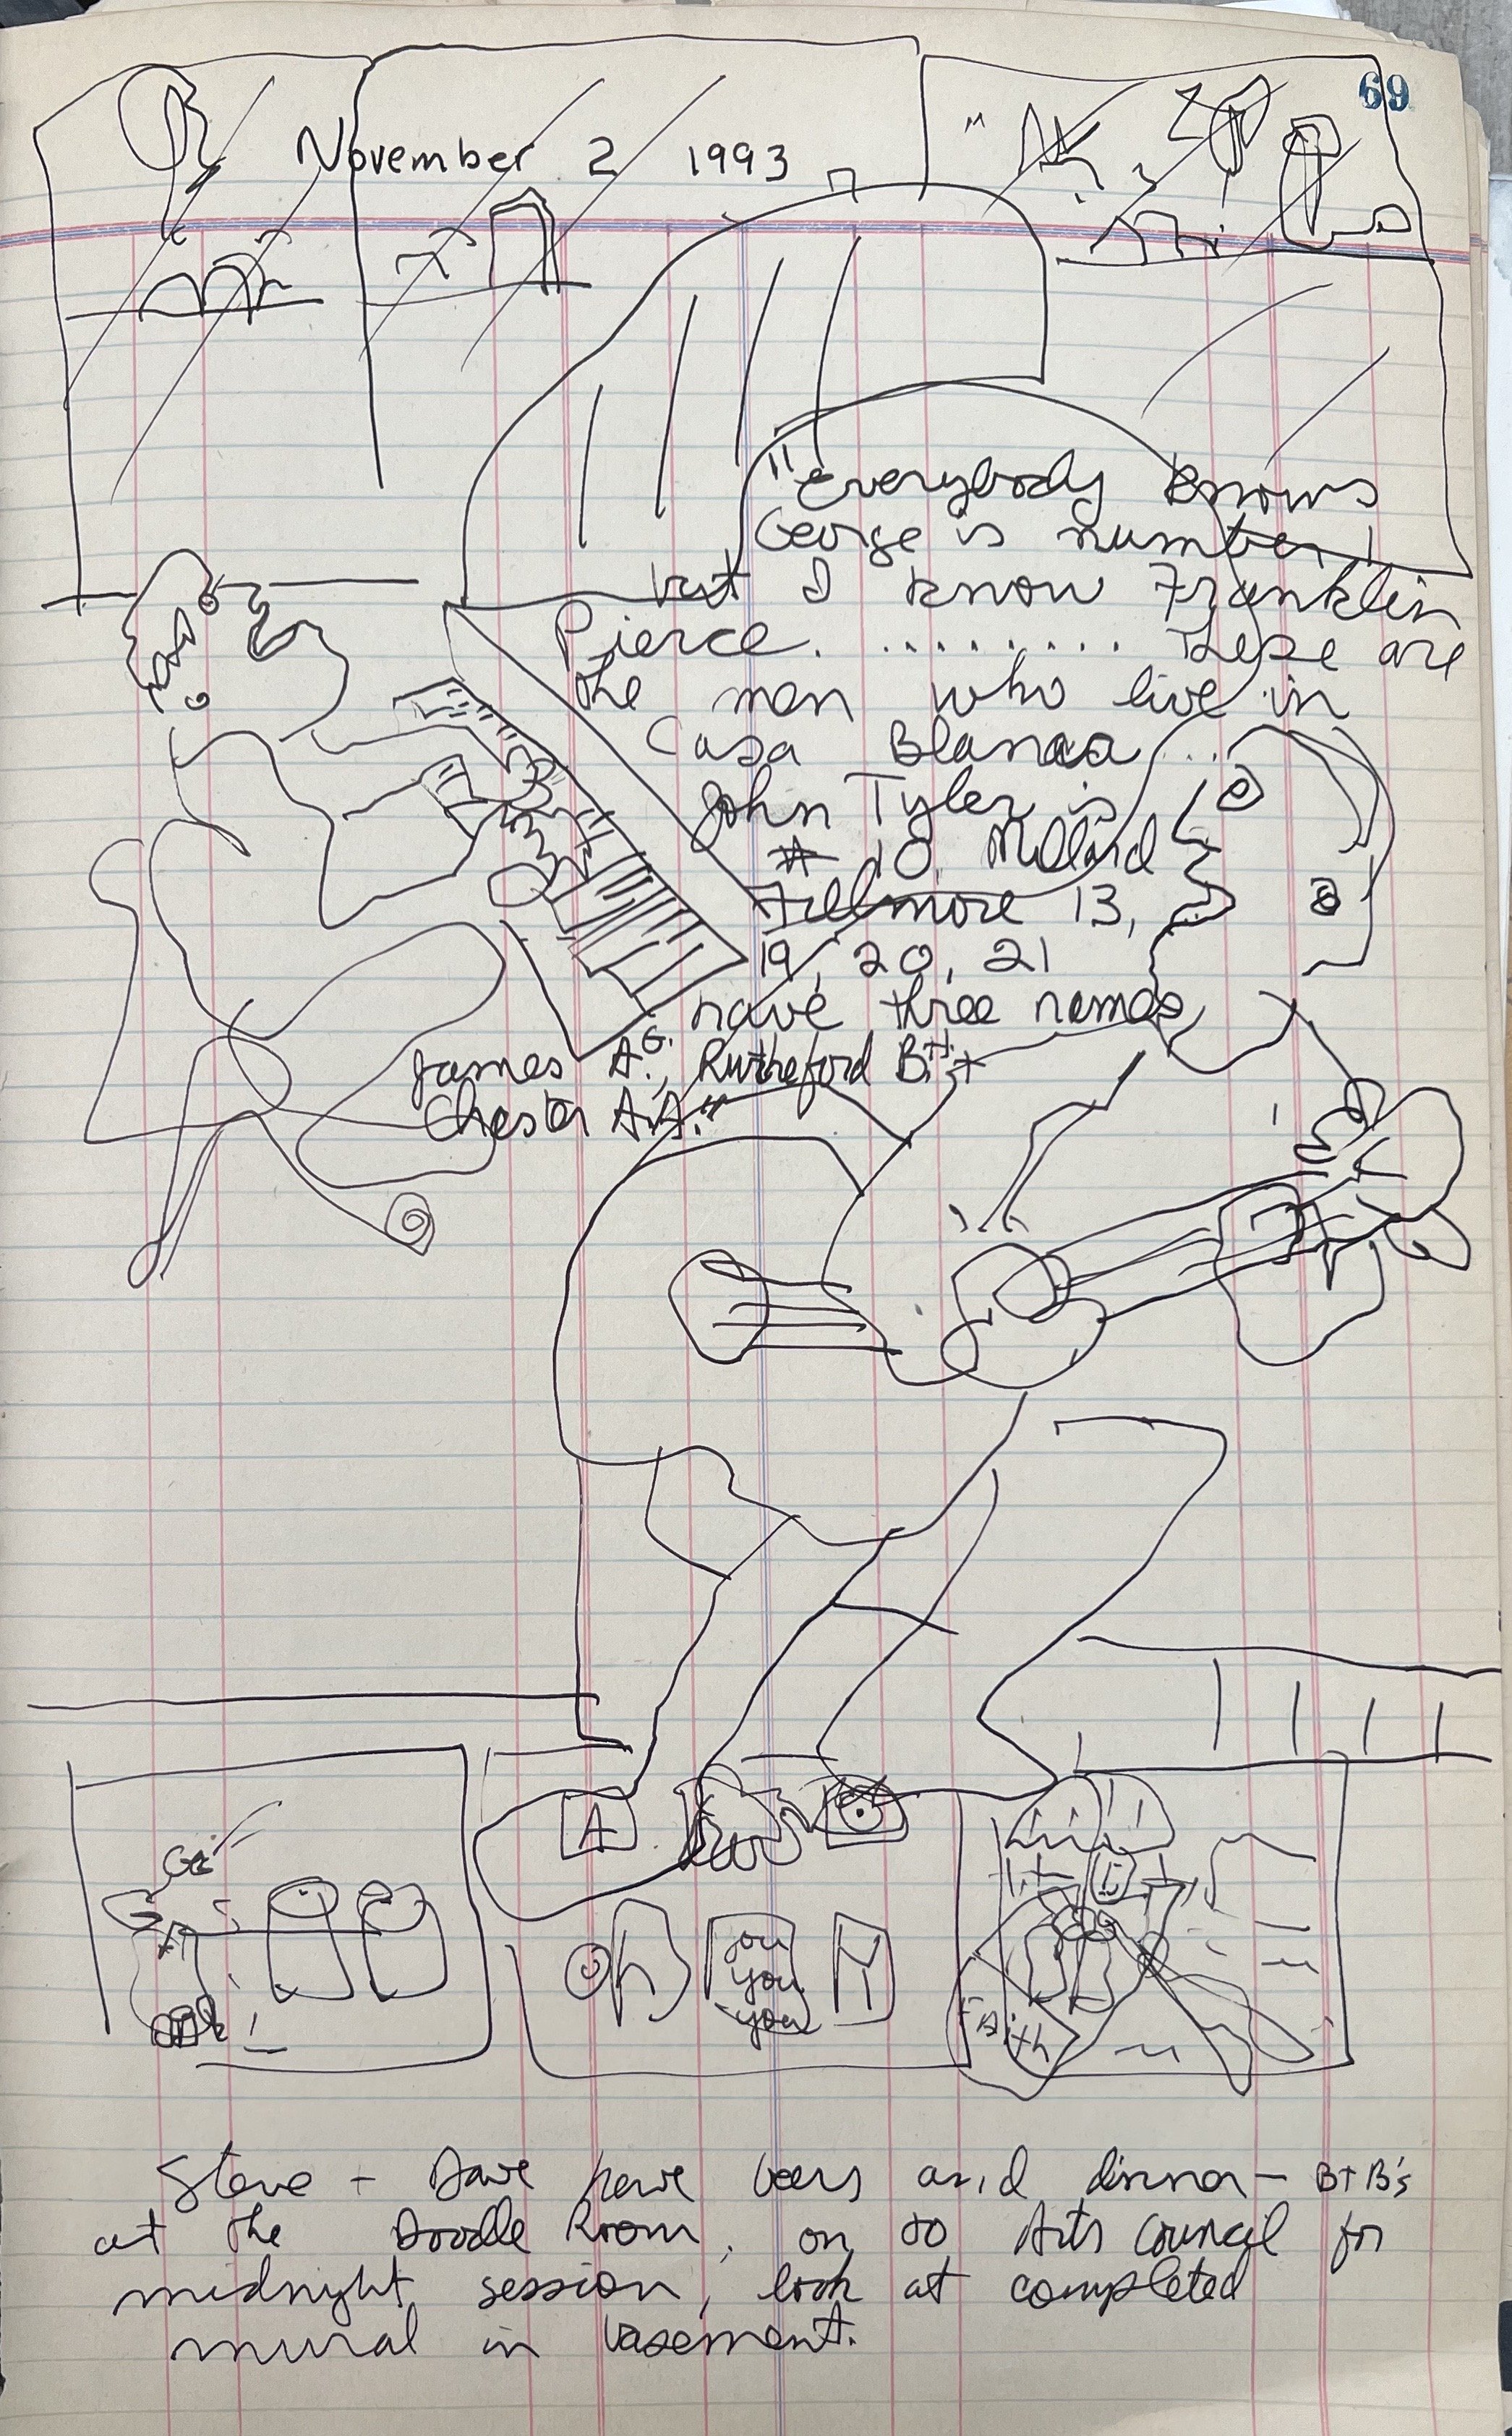 69
November 2 1993
"Everybody knows
George is number 1
but I know Franklin
Pierce. ......... these are
the men who live in
Casa Blanca ...
John Tyler is
# 10. Millard
Fillmore 13,
19, 20, 21
have three names
James A. G., Rutheford B. H. +
Chester A. A."
A
oh
you
you
you
Faith
Steve + Dave have beers and dinner - B+B's
at the Doodle Room, on to Arts Council for
midnight session, look at completed
mural in basement.